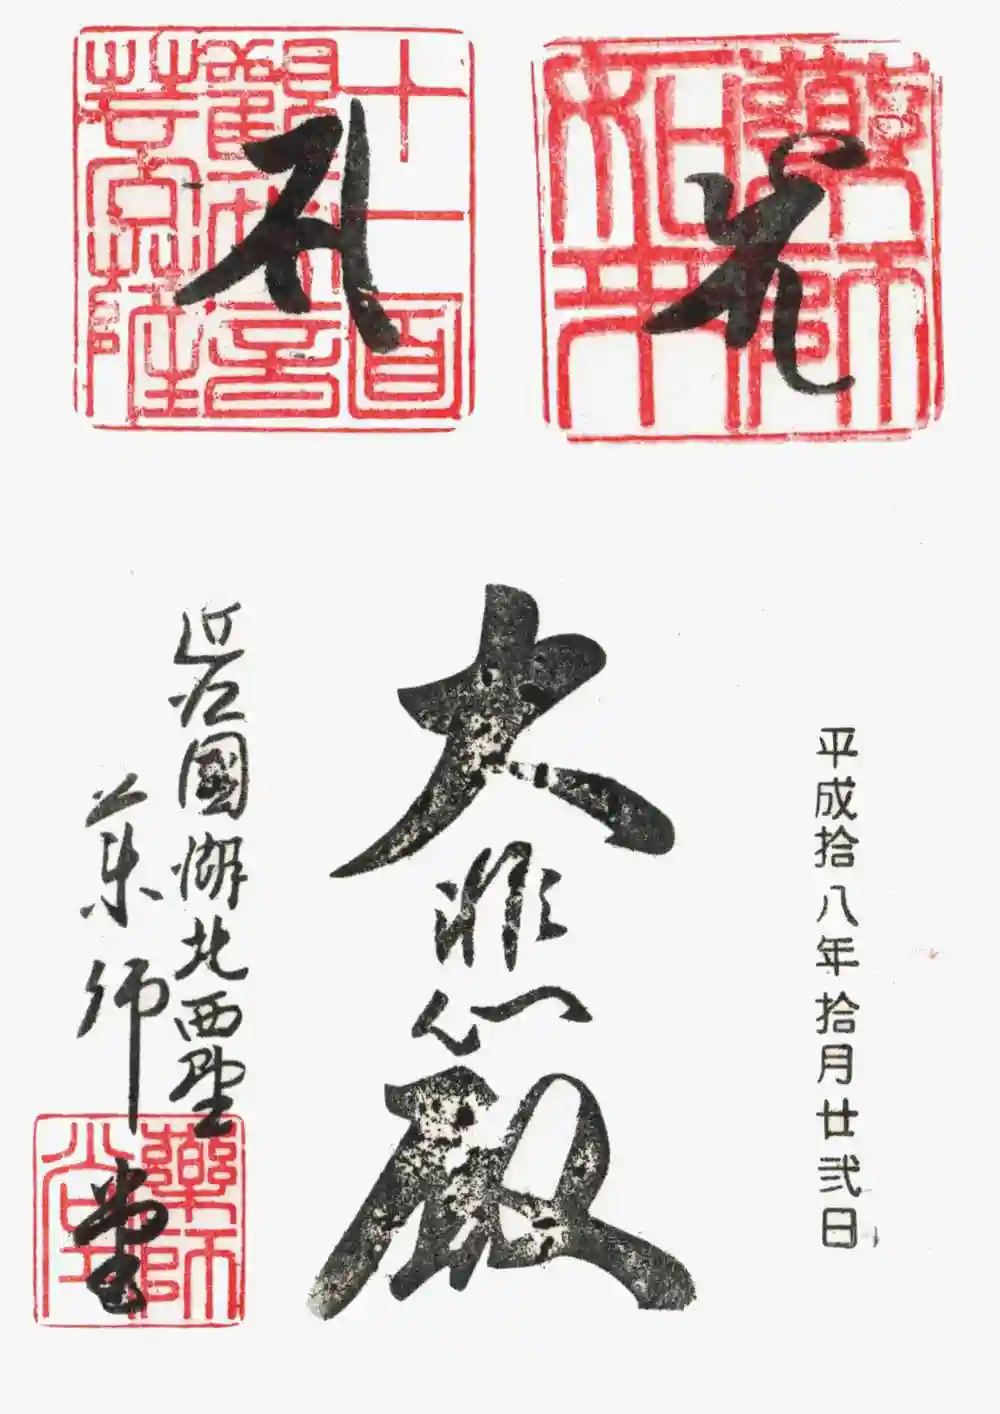 平成拾八年拾月廿弍日
藥師
如來
十一面
觀世音
菩薩
大悲殿
近江國湖北西墅
薬師堂
藥師
堂